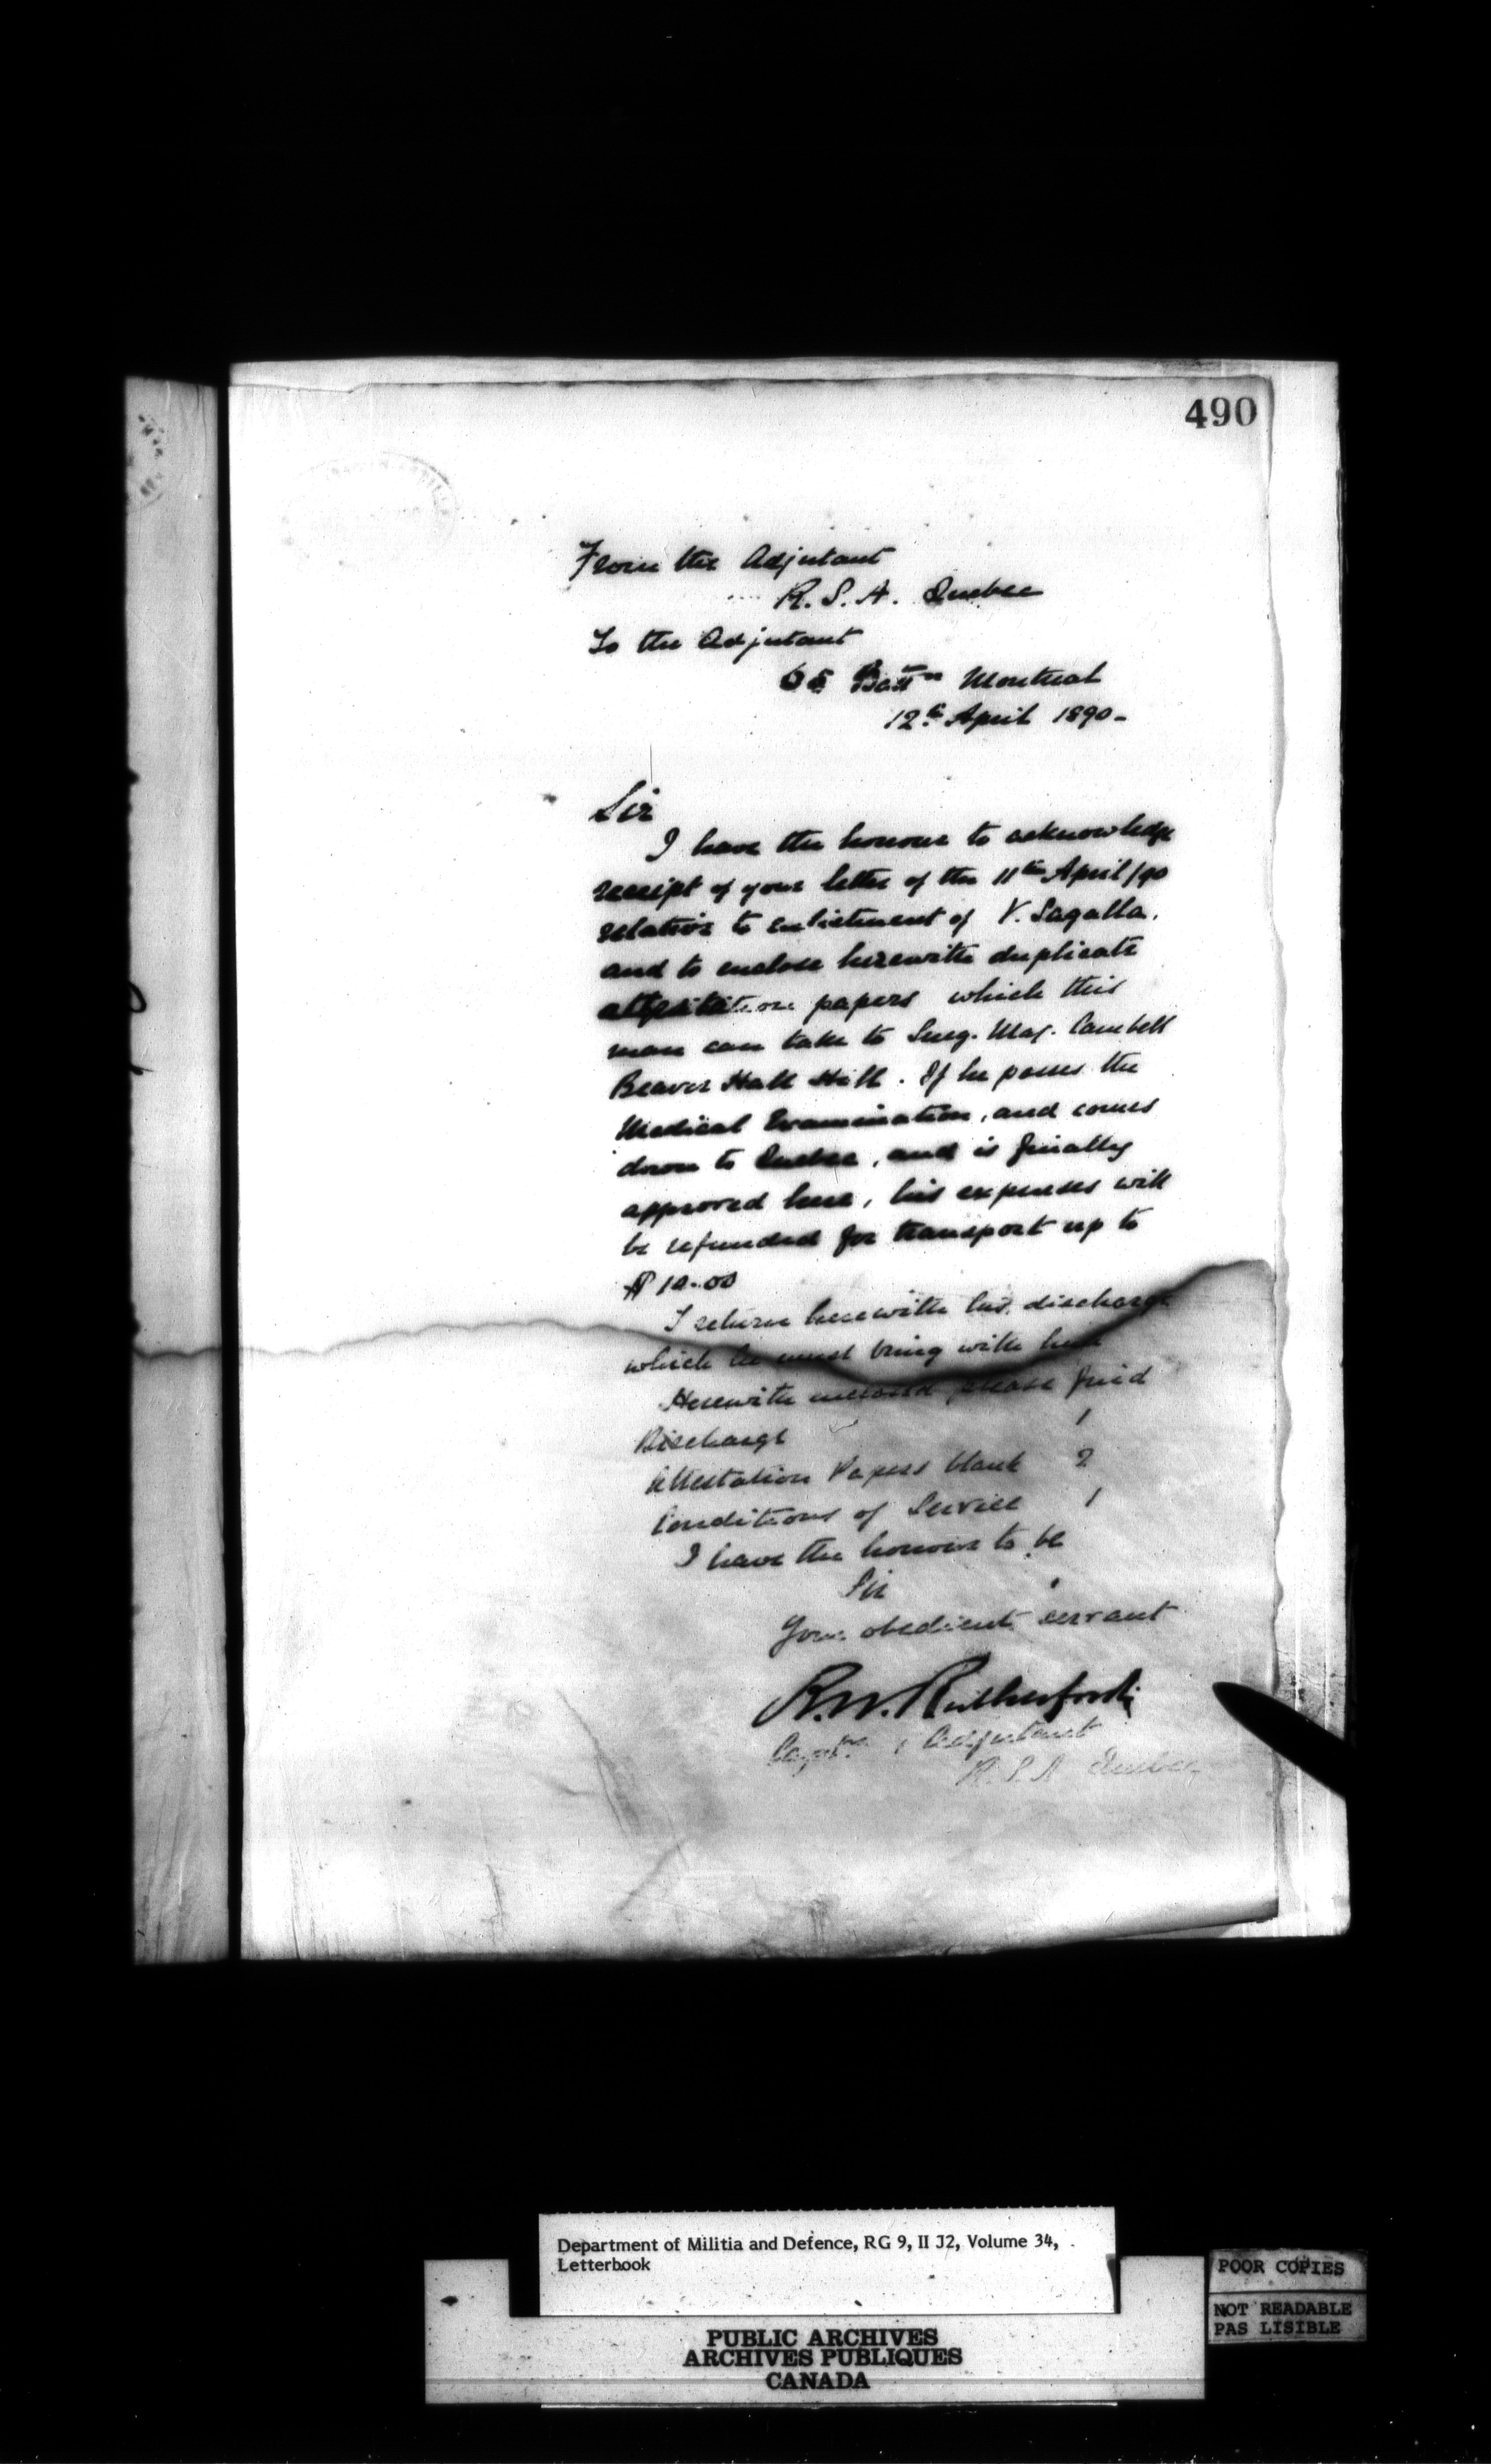 490
From the Adjutant
R. S. A. Quebec
To the Adjutant
65 Battn Montreal
12th April 1890-
Sir
I have the honour to acknowledge
receipt of your letter of the 11th April/90
relative to enlistment of V. Lagalla,
and to enclose herewith duplicate
attestation papers which this
man can take to Surg. Maj. Cambell
Beaver Hall Hill. If he passes the
Medical Examination, and comes
down to Quebec, and is finally
approved here, his expenses will
be refunded for transport up to
$ 10.00
I return herewith his discharge
which he must bring with him
Herewith enclosed please find
Discharge 1
Attestation Papers blank 2
Conditions of Service 1
I have the honour to be
Sir
Your obedient servant
R.W. Rutherford
Captn. Adjutant
R.S.A Quebec
Department of Militia and Defence, RG 9, II J2, Volume 34,
Letterbook
POOR COPIES
NOT READABLE
PAS LISIBLE
PUBLIC ARCHIVES
ARCHIVES PUBLIQUES
CANADA